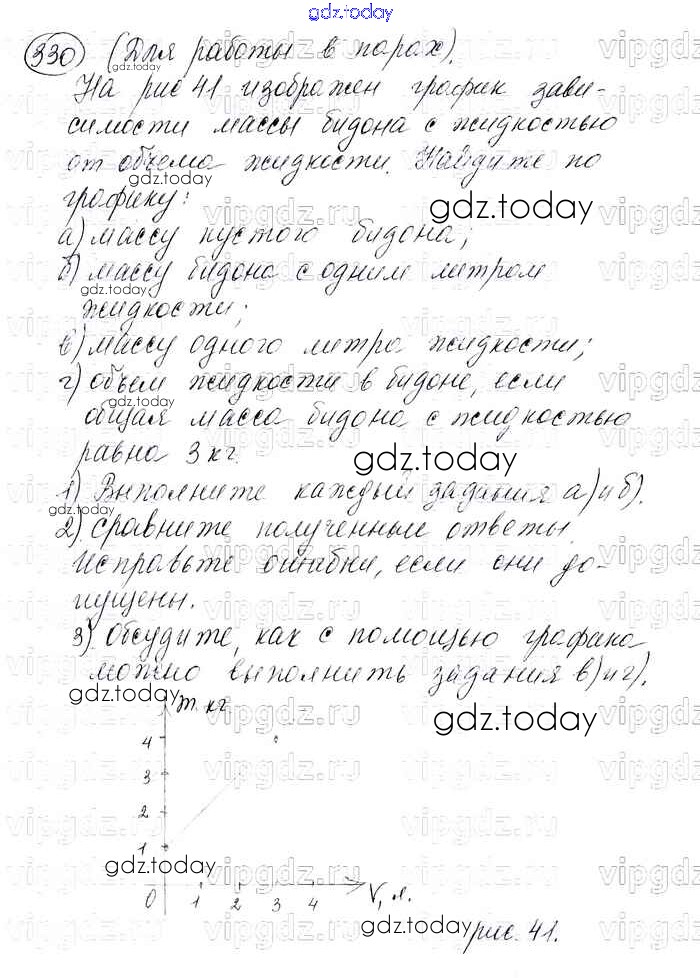 gdz.today
330 (Для работы в парах).
На рис 41 изображен график зави-
симости массы бидона с жидкостью
от объема жидкости. Найдите по
графику:
а) массу пустого бидона;
б) массу бидона с одним литром
жидкости;
в) массу одного литра жидкости;
г) объем жидкости в бидоне, если
общая масса бидона с жидкостью
равна 3 кг.
1) Выполните каждый задания а) и б).
2) Сравните полученные ответы.
Исправьте ошибки, если они до-
пущены.
3) Обсудите, как с помощью графика
можно выполнить задания в) и г).
m. кг
4
3
2
1
0 1 2 3 4 V, л.
рис. 41.
gdz.today
gdz.today
gdz.today
gdz.today
gdz.today
gdz.today
gdz.today
gdz.today
gdz.today
gdz.today
vipgdz.ru